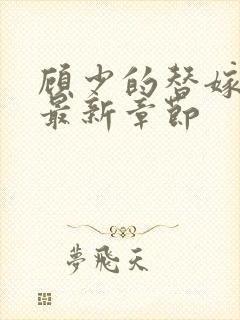 顾少的替嫁
最新章节
夢飛天